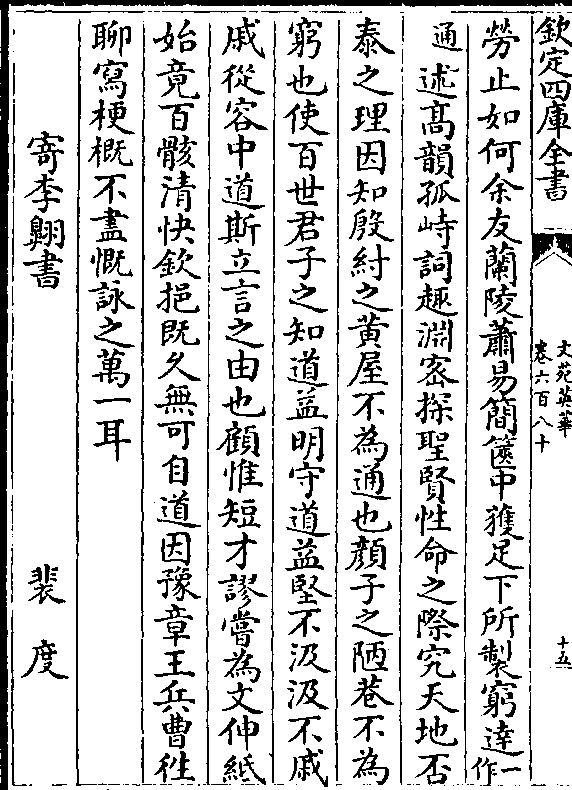 欽定四庫全書
文苑英華
卷六百八十
十五
勞止如何余友蘭陵蕭易簡篋中獲足下所製窮達一作
通述髙韻孤峙詞趣淵宻探聖賢性命之際究天地否
泰之理因知殷紂之黄屋不為通也顔子之陋巷不為
窮也使百世君子之知道益明守道益堅不汲汲不戚
戚從容中道斯立言之由也顧惟短才謬嘗為文伸紙
始竟百骸清快欽挹既久無可自道因豫章王兵曹徃
聊寫梗概不盡慨詠之萬一耳
寄李翺書 裴度